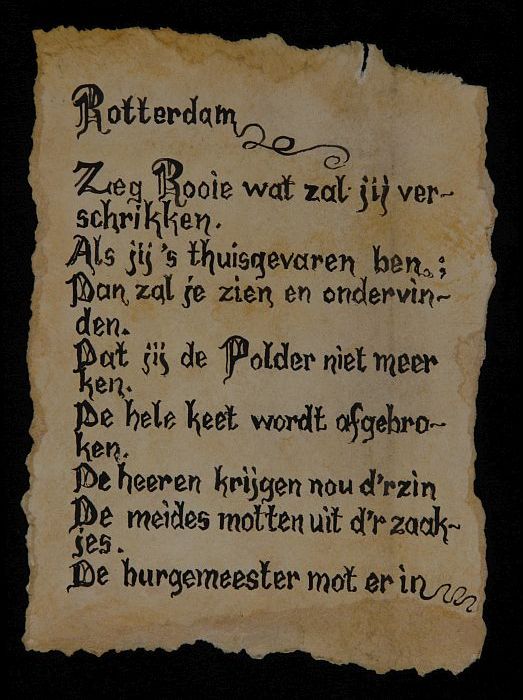 Rotterdam
Zeg Rooie wat zal jij ver-
schrikken.
Als jij 's thuisgevaren ben.;
Dan zal je zien en ondervin-
den.
Dat jij de Polder niet meer
ken.
De hele keet wordt afgebro-
ken.
De heeren krijgen nou d'r zin
De meides motten uit d'r zaak-
jes.
De burgemeester mot er in